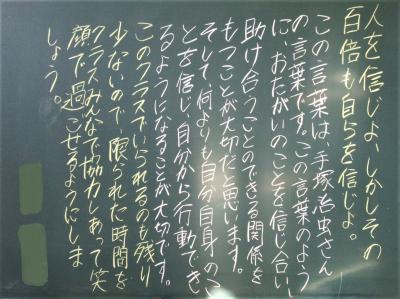 人を信じよ、しかしその
百倍も自らを信じよ。
この言葉は、手塚治虫さん
の言葉です。この言葉のよう
に、おたがいのことを信じ合い、
助け合うことのできる関係を
もつことが大切だと思います。
そして、何よりも自分自身のこ
とを信じ、自分から行動でき
るようになることが大切です。
このクラスでいられるのも残り
少ないので、限られた時間を
クラスみんなで協力しあって笑
顔で過ごせるようにしま
しょう。